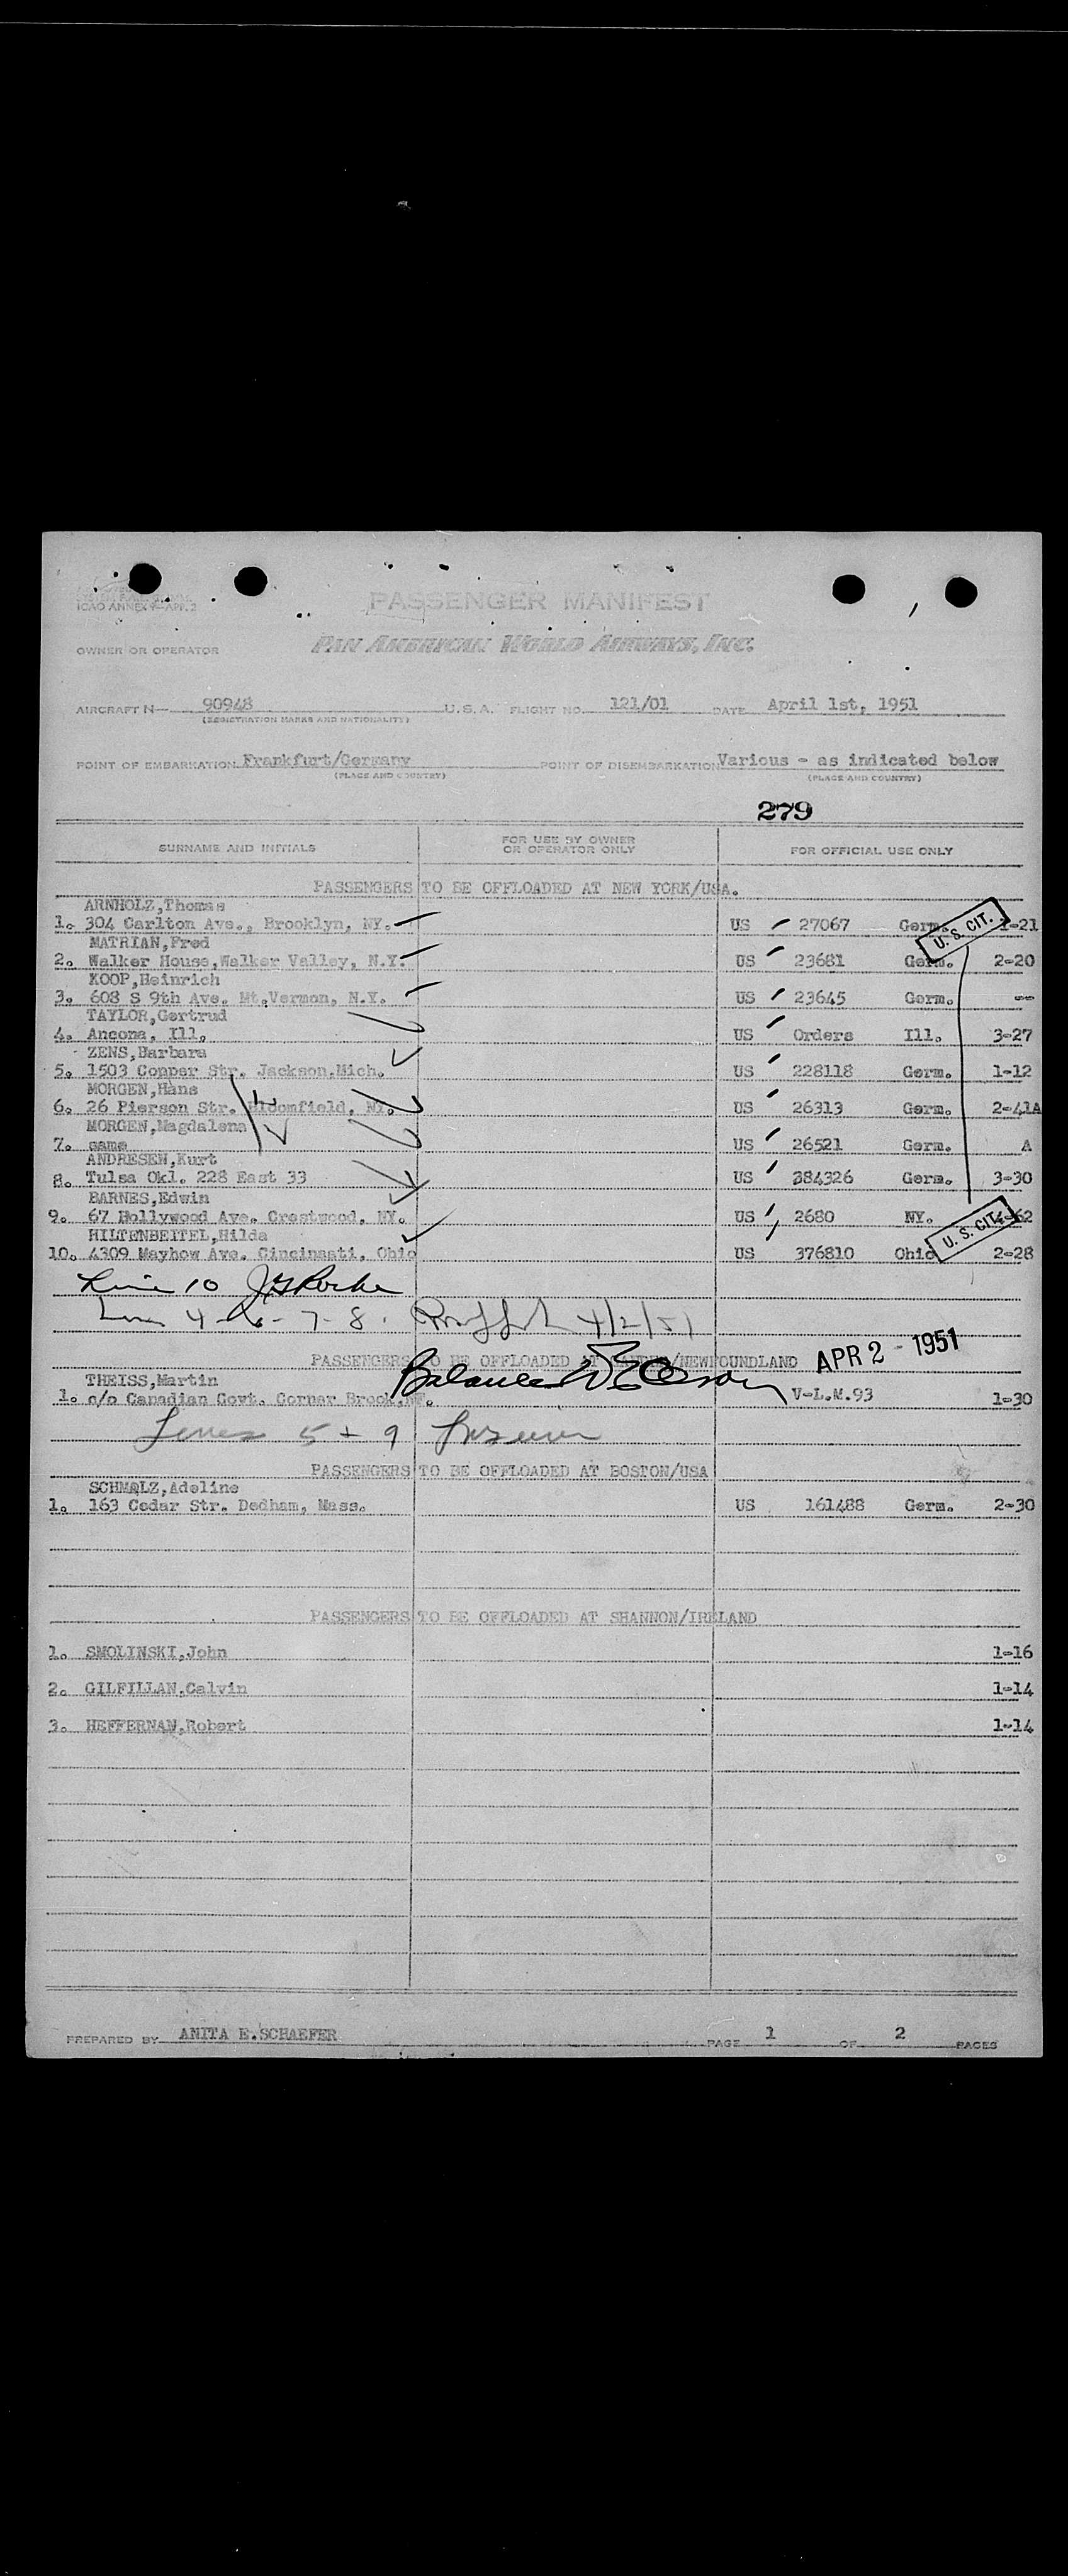 ICAO ANNEX 9-APP. 2
PASSENGER MANIFEST
OWNER OR OPERATOR PAN AMERICAN WORLD AIRWAYS, INC.
AIRCRAFT N— 90948 U.S.A. FLIGHT NO. 121/01 DATE April 1st, 1951
(REGISTRATION MARKS AND NATIONALITY)
POINT OF EMBARKATION Frankfurt/Germany POINT OF DISEMBARKATION Various - as indicated below
(PLACE AND COUNTRY) (PLACE AND COUNTRY)
279
SURNAME AND INITIALS FOR USE BY OWNER OR OPERATOR ONLY FOR OFFICIAL USE ONLY
PASSENGERS TO BE OFFLOADED AT NEW YORK/USA.
ARNHOLZ,Thomas
1. 304 Carlton Ave., Brooklyn, NY. US 27067 Germ. 1-21
U. S. CIT.
MATRIAN,Fred
2. Walker House,Walker Valley, N.Y. US 23681 Germ. 2-20
KOOP,Heinrich
3. 608 S 9th Ave. Mt.Vernon, N.Y. US 23645 Germ. --
TAYLOR,Gertrud
4. Ancona, Ill. US Orders Ill. 3-27
ZENS,Barbara
5. 1503 Cooper Str. Jackson,Mich. US 228118 Germ. 1-12
MORGEN,Hans
6. 26 Pierson Str. Bloomfield, NJ. US 26313 Germ. 2-41A
MORGEN,Magdalena
7. same US 26521 Germ. A
ANDRESEN,Kurt
8. Tulsa Okl. 228 East 33 US 384326 Germ. 3-30
BARNES,Edwin
9. 67 Hollywood Ave. Crestwood, NY. US 2680 NY. -62
U. S. CIT.
HILTENBEITEL,Hilda
10. 4309 Mayhow Ave. Cincinnati, Ohio US 376810 Ohio 2-28
Line 10
Lines 4 - 6 - 7 - 8. 4/2/51
PASSENGERS TO BE OFFLOADED AT GANDER/NEWFOUNDLAND
APR 2 - 1951
Balance
THEISS,Martin
1. c/o Canadian Govt. Corner Brook,NF. V-L.M.93 1-30
Lines 5 + 9
PASSENGERS TO BE OFFLOADED AT BOSTON/USA
SCHMALZ,Adeline
1. 163 Cedar Str. Dedham, Mass. US 161488 Germ. 2-30
PASSENGERS TO BE OFFLOADED AT SHANNON/IRELAND
1. SMOLINSKI,John 1-16
2. GILFILLAN,Calvin 1-14
3. HEFFERNAN,Robert 1-14
PREPARED BY ANITA E.SCHAEFER PAGE 1 OF 2 PAGES